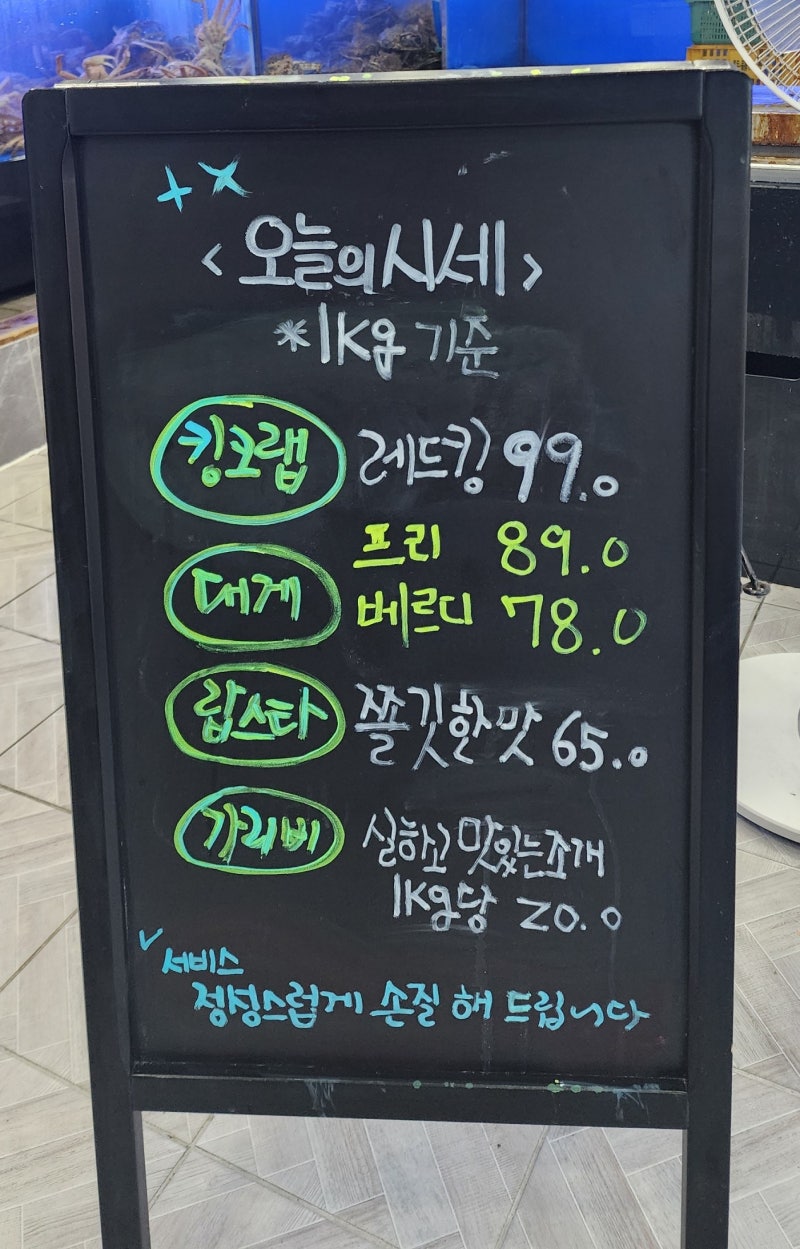 <오늘의시세>
*1kg 기준
킹크랩 레드킹 99.0
프리 89.0
대게 베르디 78.0
랍스타 쫄깃한맛 65.0
가리비 실하고 맛있는조개
1kg당 20.0
✓서비스
정성스럽게 손질 해 드립니다